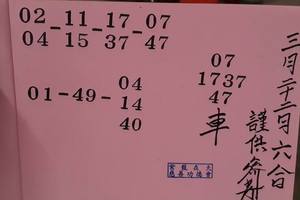 02-11-17-07
04-15-37-47
01-49-04
14
40
07
1737
47
車
三月二十二日六合
謹供參考